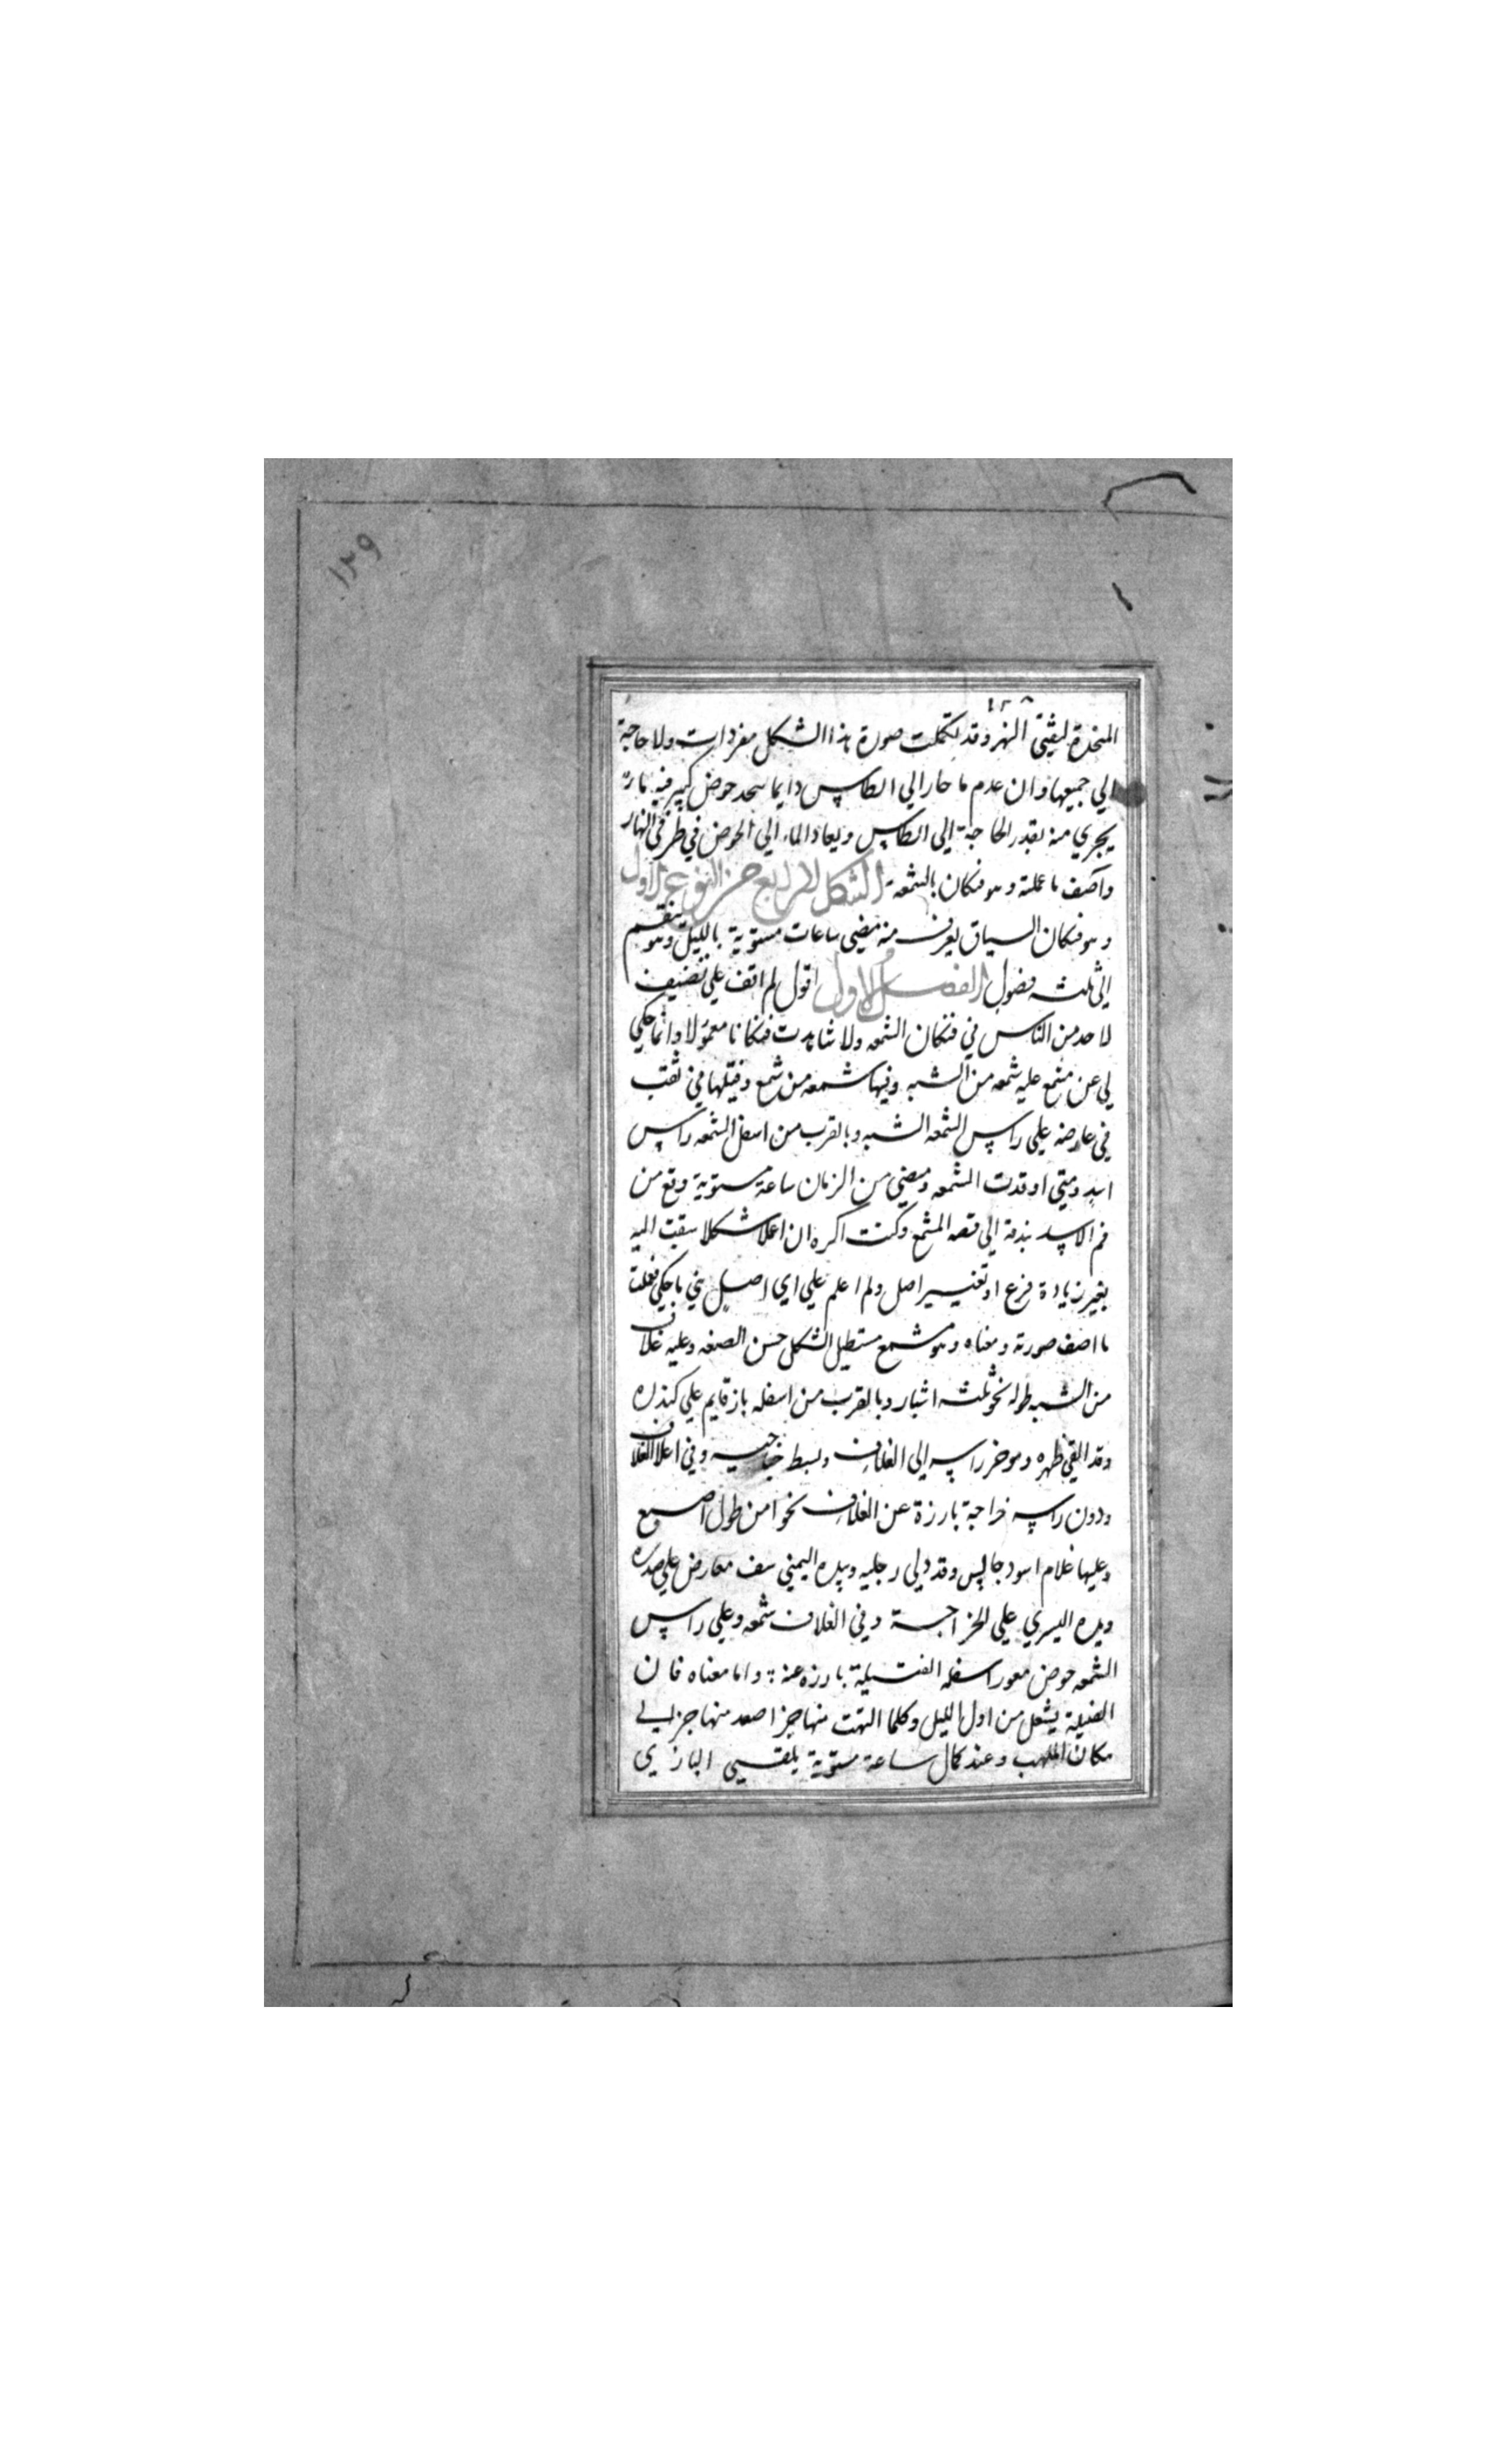 ١٢٩
١٢٨
المنخدة لبقيتي النهر وقد تكملت صورة هذا الشكل مفردات ولا حاجة
الي جميعها وان عدم ما حار الي الطاس دايما حوض كبير فيه ما
يجري منه بقدر الحاجة الي الطاس ويعاد الماء الي الحوض في طرفي النهار
وآصف ما عملته وهو فنكان بالشمعة الشكل الرابع من النوع الاول
وهو فنكان السياق يعرف منه مضي ساعات مستوية بالليل وهو ينقسم
الي ثلثة فصول الفصل الاول اقول لم اقف علي تصنيف
لاحد من الناس في فنكان الشمعه ولا شاهدت فنكانا معمولا وانما حكي
لي عن مشمع عليه شمعه من الشبه وفيها شمعه من شمع وفتيلها في ثقب
في عارضه علي راس الشمعه الشبه وبالقرب من اسفل الشمعه راس
اسد ومتي اوقدت الشمعه ومضي من الزمان ساعة مستوية وقع من
فم الاسد بندقة الي قصه المشمع وكنت اكره ان اعلا شكلا سبقت اليه
بغير زيادة فرع او تغيير اصل ولم اعلم علي اي اصل بني ما حكي فعلت
ما اصف صورته ومعناه وهو مشمع مستطيل الشكل حسن الصنعه وعليه غلاف
من الشبه طوله نحو ثلثة اشبار وبالقرب من اسفله باز قايم علي كندره
وقد القي ظهره وموخر راسه الي الغلاف وبسط جناحيه وفي اعلا الغلاف
ودون راسه خراجة بارزة عن الغلاف نحوا من طول اصبع
وعليها غلام اسود جالس وقد دلي رجليه وبيده اليمني سيف معارض علي صدره
ويده اليسري علي الخراجة وفي الغلاف شمعه وعلي راس
الشمعه حوض مقور اسفله الفتيلة بارزه عنه واما معناه فان
الفتيلة يشعل من اول الليل وكلما التهت منها جزا صعد منها جز الي
مكان الملهب وعند كمال ساعة مستوية يلقي البازي